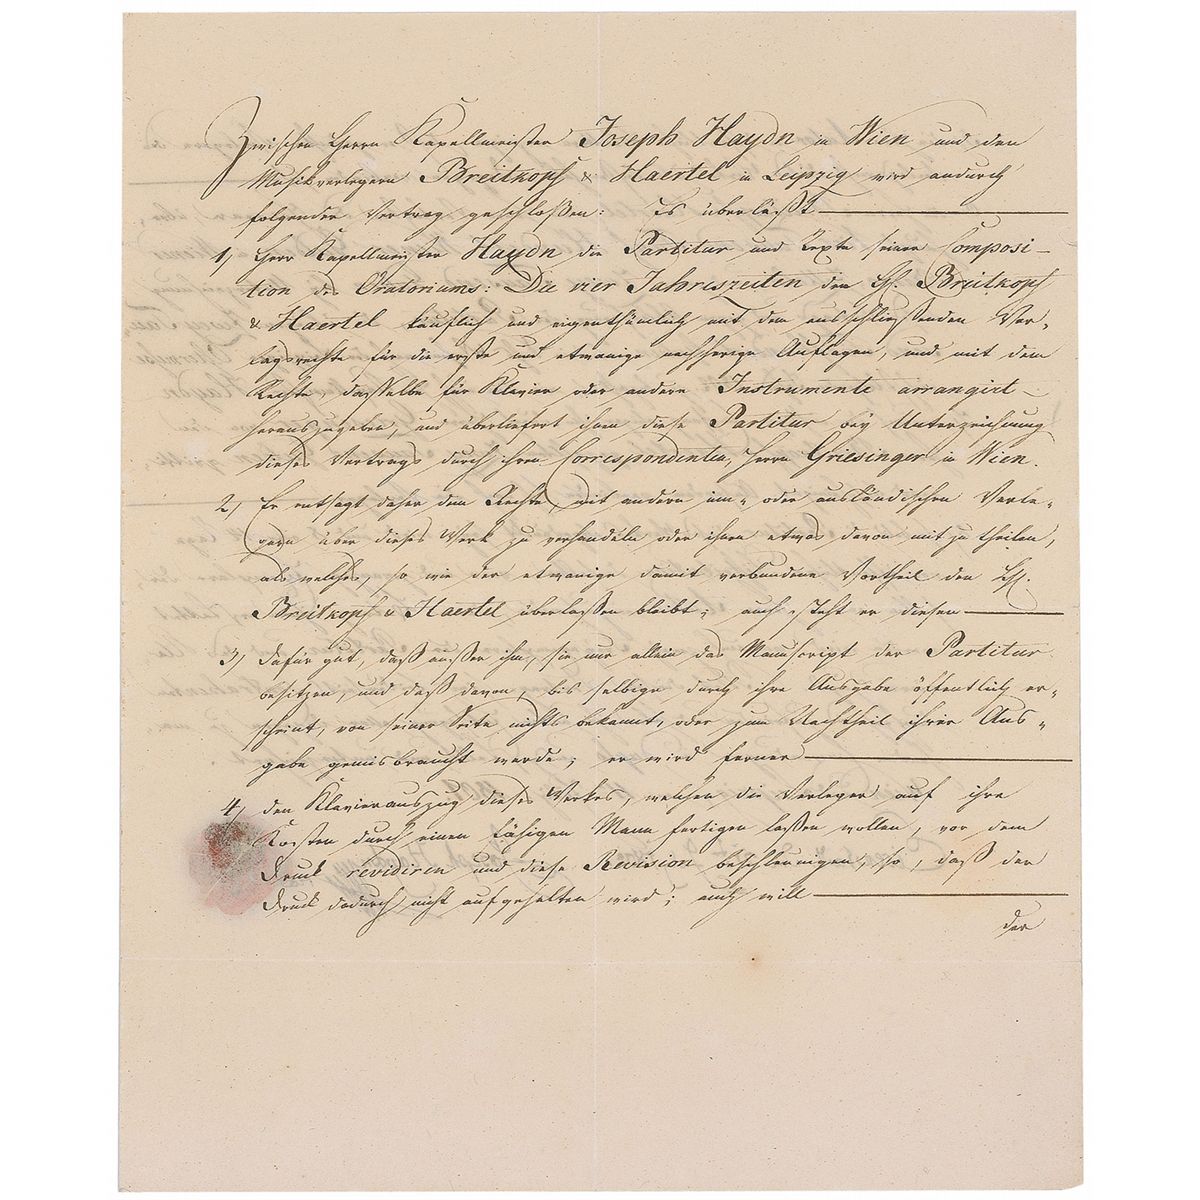 Zwischen Herrn Kapellmeister Joseph Haydn in Wien und den
Musikverlegern Breitkopf & Haertel in Leipzig wird andurch
folgender Vertrag geschloßen: Es überläßt
1) Herr Kapellmeister Haydn die Partitur und Texte seiner Composi-
tion des Oratoriums: Die vier Jahreszeiten den HH. Breitkopf
& Haertel käuflich und eigenthümlich mit dem ausschließenden Ver-
lagsrechte für die erste und etwanige nachherige Auflagen, und mit dem
Rechte dasselbe für Klavier oder andere Instrumente arrangirt
herauszugeben, und überliefert ihnen diese Partitur bey Unterzeichnung
dieses Vertrags durch ihren Correspondenten, Herrn Griesinger in Wien.
2) Er entsagt daher dem Rechte, mit andern inn- oder ausländischen Verle-
gern über dieses Werk zu verhandeln oder ihnen etwas davon mitzutheilen,
als welches, so wie der etwanige damit verbundene Vortheil den HH.
Breitkopf & Haertel überlaßen bleibt; auch steht er diesen
3) dafür gut, daß außer ihm, sie nur allein das Manuscript der Partitur
besitzen, und daß davon, bis selbige durch ihre Ausgabe öffentlich er-
scheint, von seiner Seite nichts bekannt, oder zum Nachtheil ihrer Aus-
gabe gemisbraucht werde; er wird ferner
4) den Klavierauszug dieses Werkes, welchen die Verleger auf ihre
Kosten durch einen fähigen Mann fertigen laßen wollen, vor dem
Druck revidiren und diese Revision beschleunigen, so, daß der
Druck dadurch nicht aufgehalten wird; auch will
der